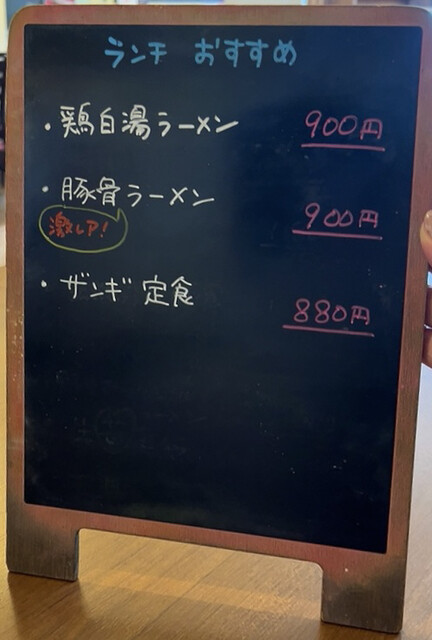 ランチ おすすめ
・鶏白湯ラーメン 900円
・豚骨ラーメン 900円
激レア!
・ザンギ 定食 880円